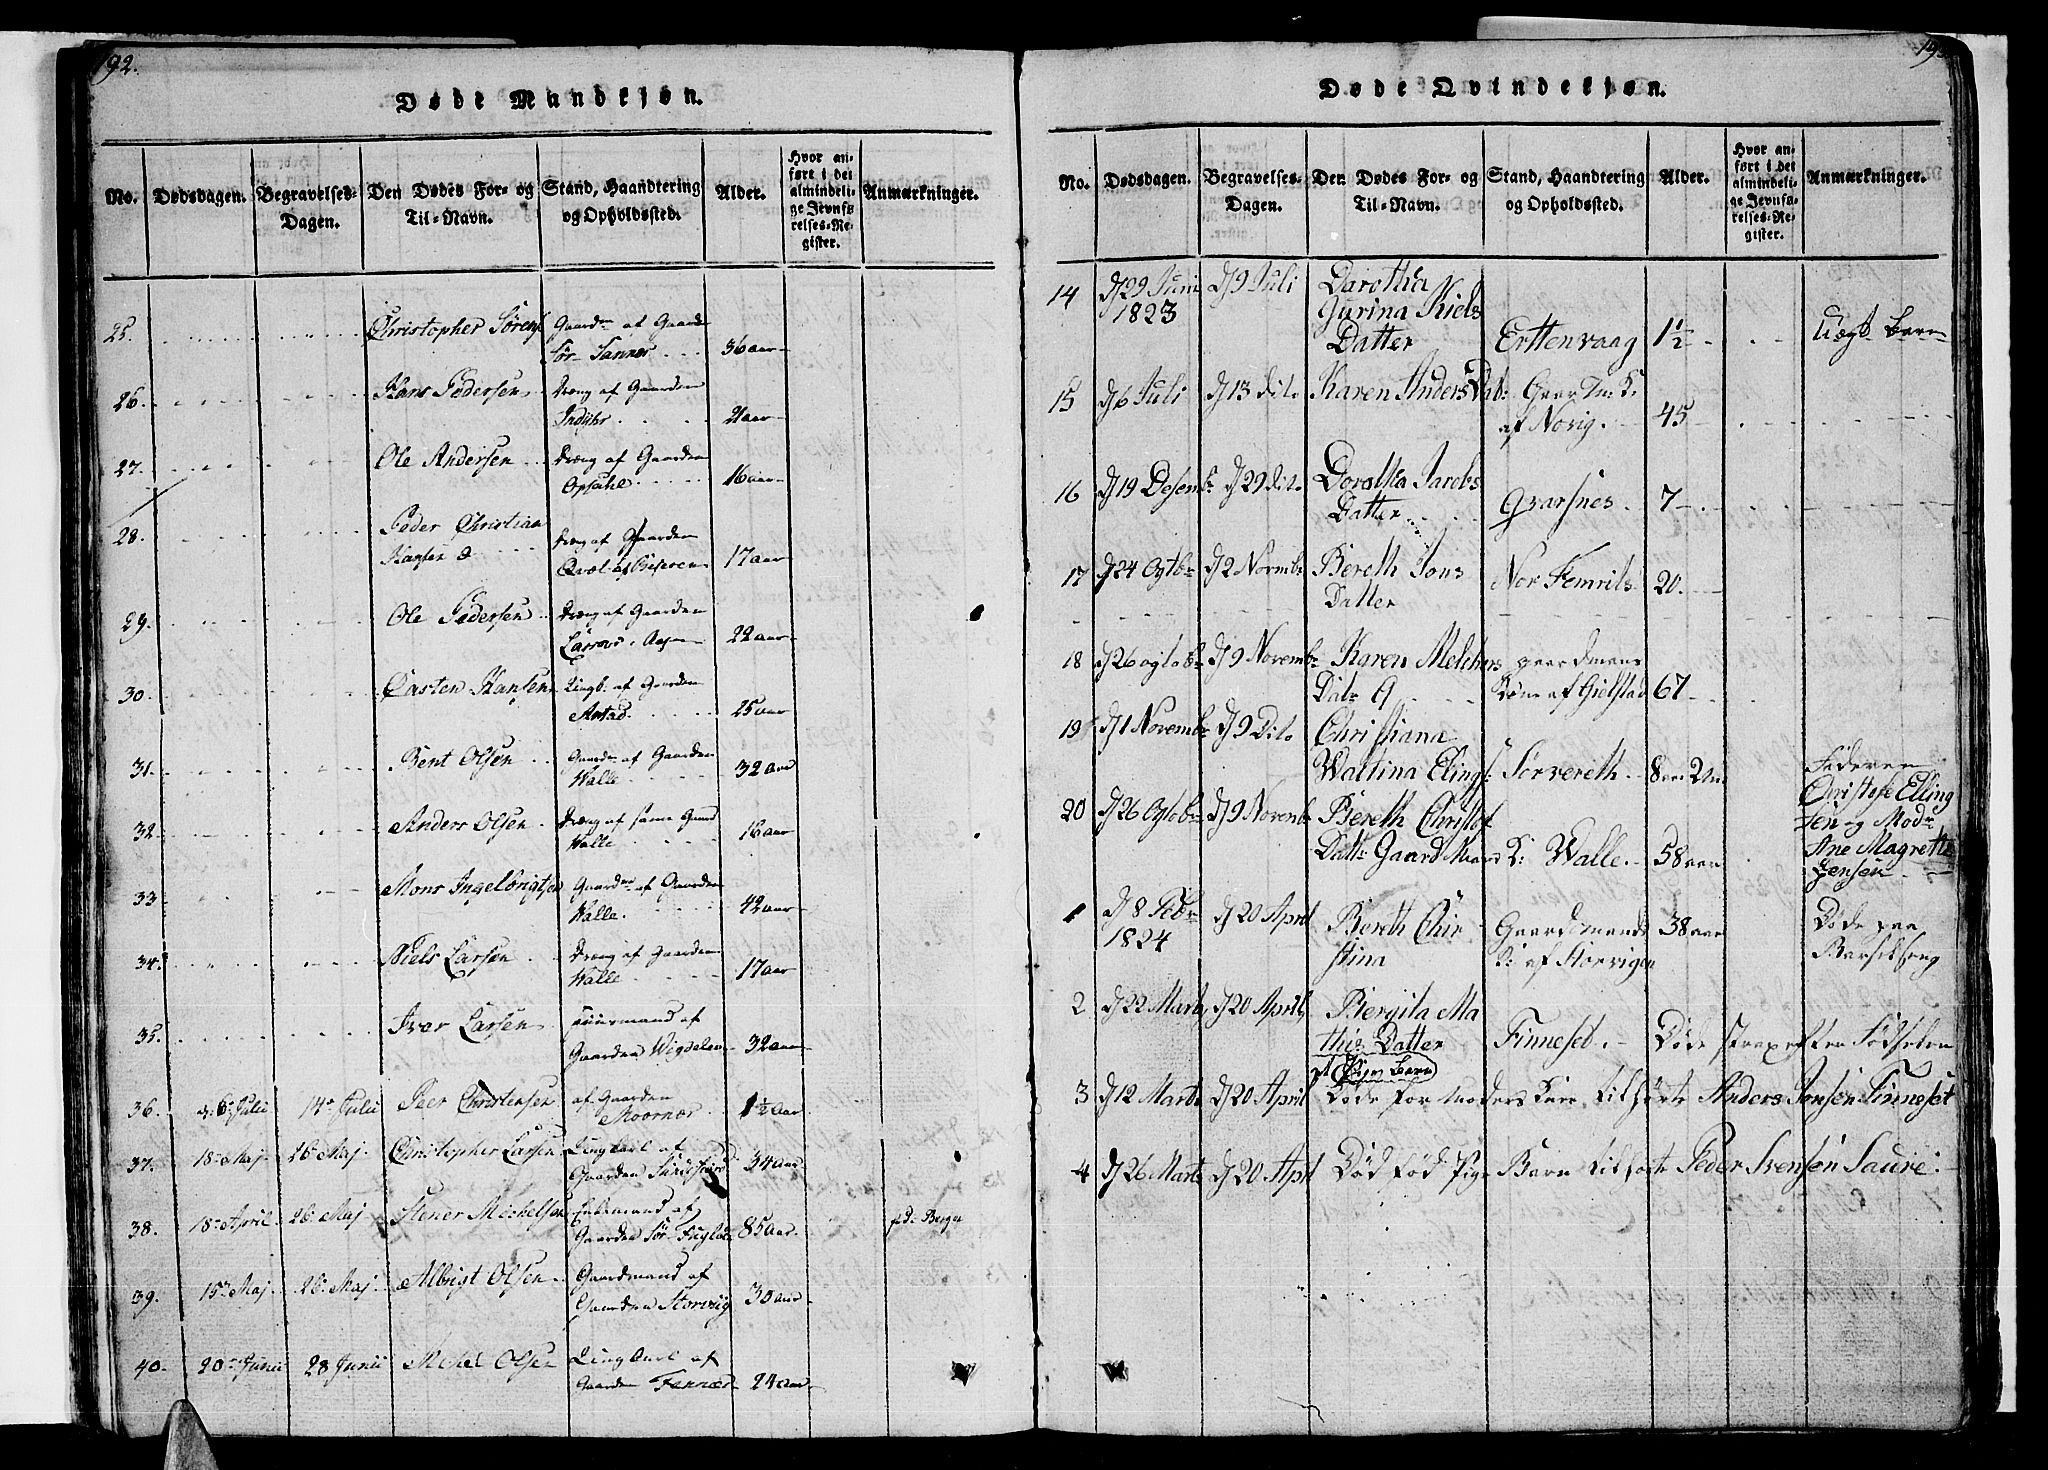 192.
Døde Mandkjøn.
No. Dødsdagen. Begravelses-Dagen. Den Dødes For- og Til-Navn. Stand, Haandtering og Opholdssted. Alder. Hvor anført i det almindelige Jevnførelses-Register. Anmærkninger.
25. Christopher Sørens Gaardm af Gaarden
Sør Sannes 36 aar
26. Hans Pedersen Dreng af Gaarden
21 aar
27. Ole Andersen Dreng af Gaarden
Opsahl 16 aar
28. Peder Christian
Hansen Dreng af Gaarden
17 aar
29. Ole Pedersen Dreng af Gaarden
22 aar
30. Carsten Hansen Ungk. af Gaarden
25 aar
31. Bent Olsen Gaardm af Gaarden
Walle 32 aar
32. Anders Olsen Dreng af samme Gaard
Walle 16 aar
33 Mons Ingelbrigtsen Gaardm af Gaarden
Walle 42 aar
34. Niels Larsen Dreng af Gaarden
Walle 17 aar
35. Iver Larsen Huusmand af
Gaarden Wigdelen 32 aar
36. d. 6 Julii 14 Julii Peer Christensen af Gaarden
Moornes 1½ aar
37. 18 Maj 26 Maj Christopher Larsen Ungkarl af
Gaarden 34 aar
38. 18 April 26 Maj Stener Michelsen Enkemand af
Gaarden Sør Fugløe 85 aar
39. 15 Maj 26 Maj Albrigt Olsen Gaardmand af
Gaarden Storvig 30 aar
40. 20 Junii 28 Junii Michel Olsen Ungkarl af
Gaarden Fennes 24 aar
Døde Qvindekjøn.
No. Dødsdagen. Begravelses-Dagen. Den Dødes For- og Til-Navn. Stand, Haandtering og Opholdssted. Alder. Hvor anført i det almindelige Jevnførelses-Register. Anmærkninger.
14 d 29 Juni d 9 Juli Darothea
1823 Gurina Niels
Datter Erttenvaag 1½ Uægt Barn
15 d 6 Juli d 13 Dito Karen Anders Dat:
af Norvig. 45
16 d 19 Desemb d 29 Dito Dorothea Jacobs
Datter Gvarsnes 7
17 d 24 Ogtb d 2 Novemb Bereth Jons
Datter Nor Femriis 20.
18 d 26 ogtob d 9 Novemb Karen Melchers gaardmans
Datr Kone af Gielstad 67
19 d 1 Novemb d 9 Dito Christiana
Martina Elings Sørvereth 8 aar
Faderen
Christofe Elling
sen og Modr
Ane Magrethe
Jensen
20 d 26 Ogtob d 9 Novemb Bereth Christof
Datter Gaard Mand K: Walle 58 aar
1 d 8 Feb d 20 April Bereth Chir Gaardmands 38 aar Døde paa
1824 stina K: af Storvigen Barselseng
2 d 22 Marts d 20 April Bergita Ma
this Datter Finneset Døde strax efter Fødselen
et Pige Barn
3 d 12 Marts d 20 April Døde for moders tilhørte Anders Jonsen Finneset
4 d 26 Marts d 20 April Død fød Pige Barn tilhørte Peder Svensøn Saure